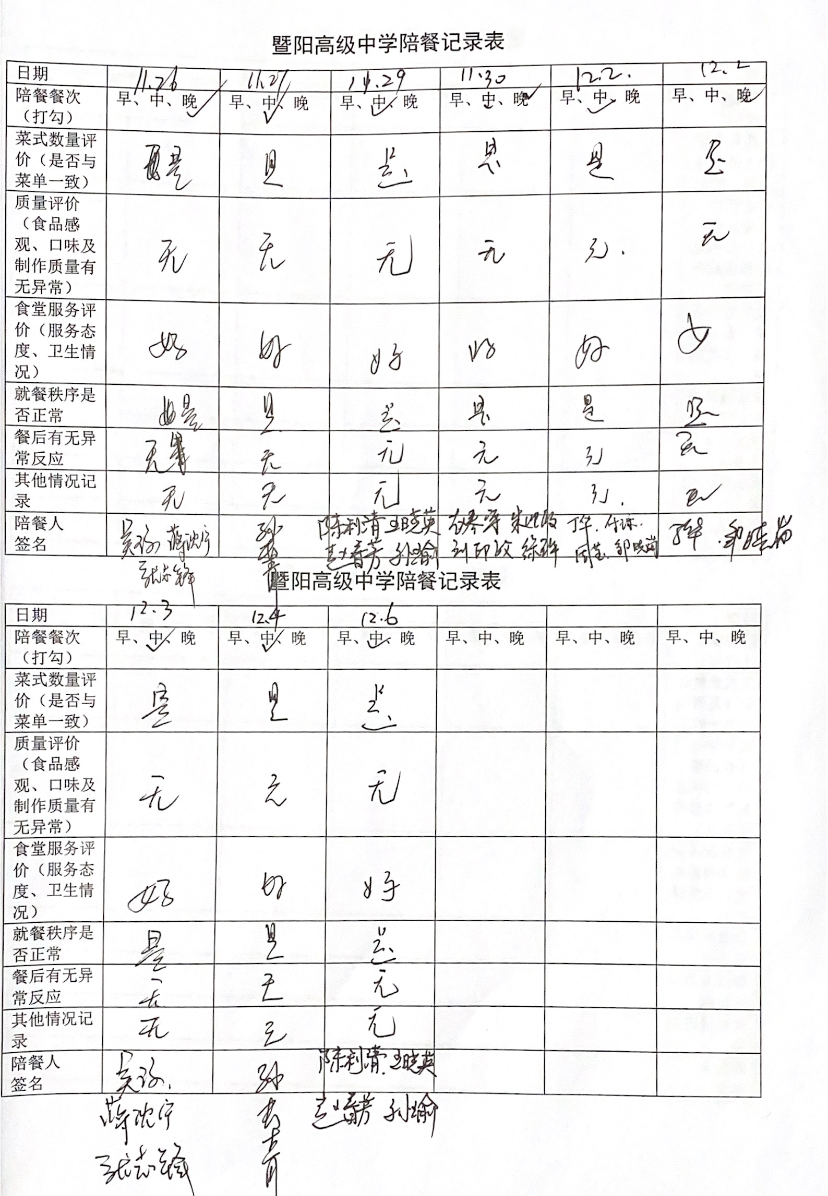 暨阳高级中学陪餐记录表
日期 11.26 11.27 11.29 11.30 12.2. 12.2
陪餐餐次 早、中、晚✓ 早、中✓、晚 早、中✓、晚 早、中、晚✓ 早、中✓、晚 早、中、晚✓
（打勾）
菜式数量评
价（是否与 是 是 是 是 是 是
菜单一致）
质量评价
（食品感
观、口味及 无 无 无 无 无 无
制作质量有
无异常）
食堂服务评
价（服务态 好 好 好 好 好 好
度、卫生情
况）
就餐秩序是 是 是 是 是 是 是
否正常
餐后有无异 无 无 无 无 无 无
常反应
其他情况记 无 无 无 无 无 无
录
陪餐人 孙 陈利清 王晓英
签名 赵春芳 孙瑜
暨阳高级中学陪餐记录表
日期 12.3 12.4 12.6
陪餐餐次 早、中✓、晚 早、中✓、晚 早、中✓、晚 早、中、晚 早、中、晚 早、中、晚
（打勾）
菜式数量评
价（是否与 是 是 是
菜单一致）
质量评价
（食品感
观、口味及 无 无 无
制作质量有
无异常）
食堂服务评
价（服务态 好 好 好
度、卫生情
况）
就餐秩序是 是 是 是
否正常
餐后有无异 无 无 无
常反应
其他情况记 无 无 无
录
陪餐人 孙 陈利清 王晓英
签名 赵春芳 孙瑜